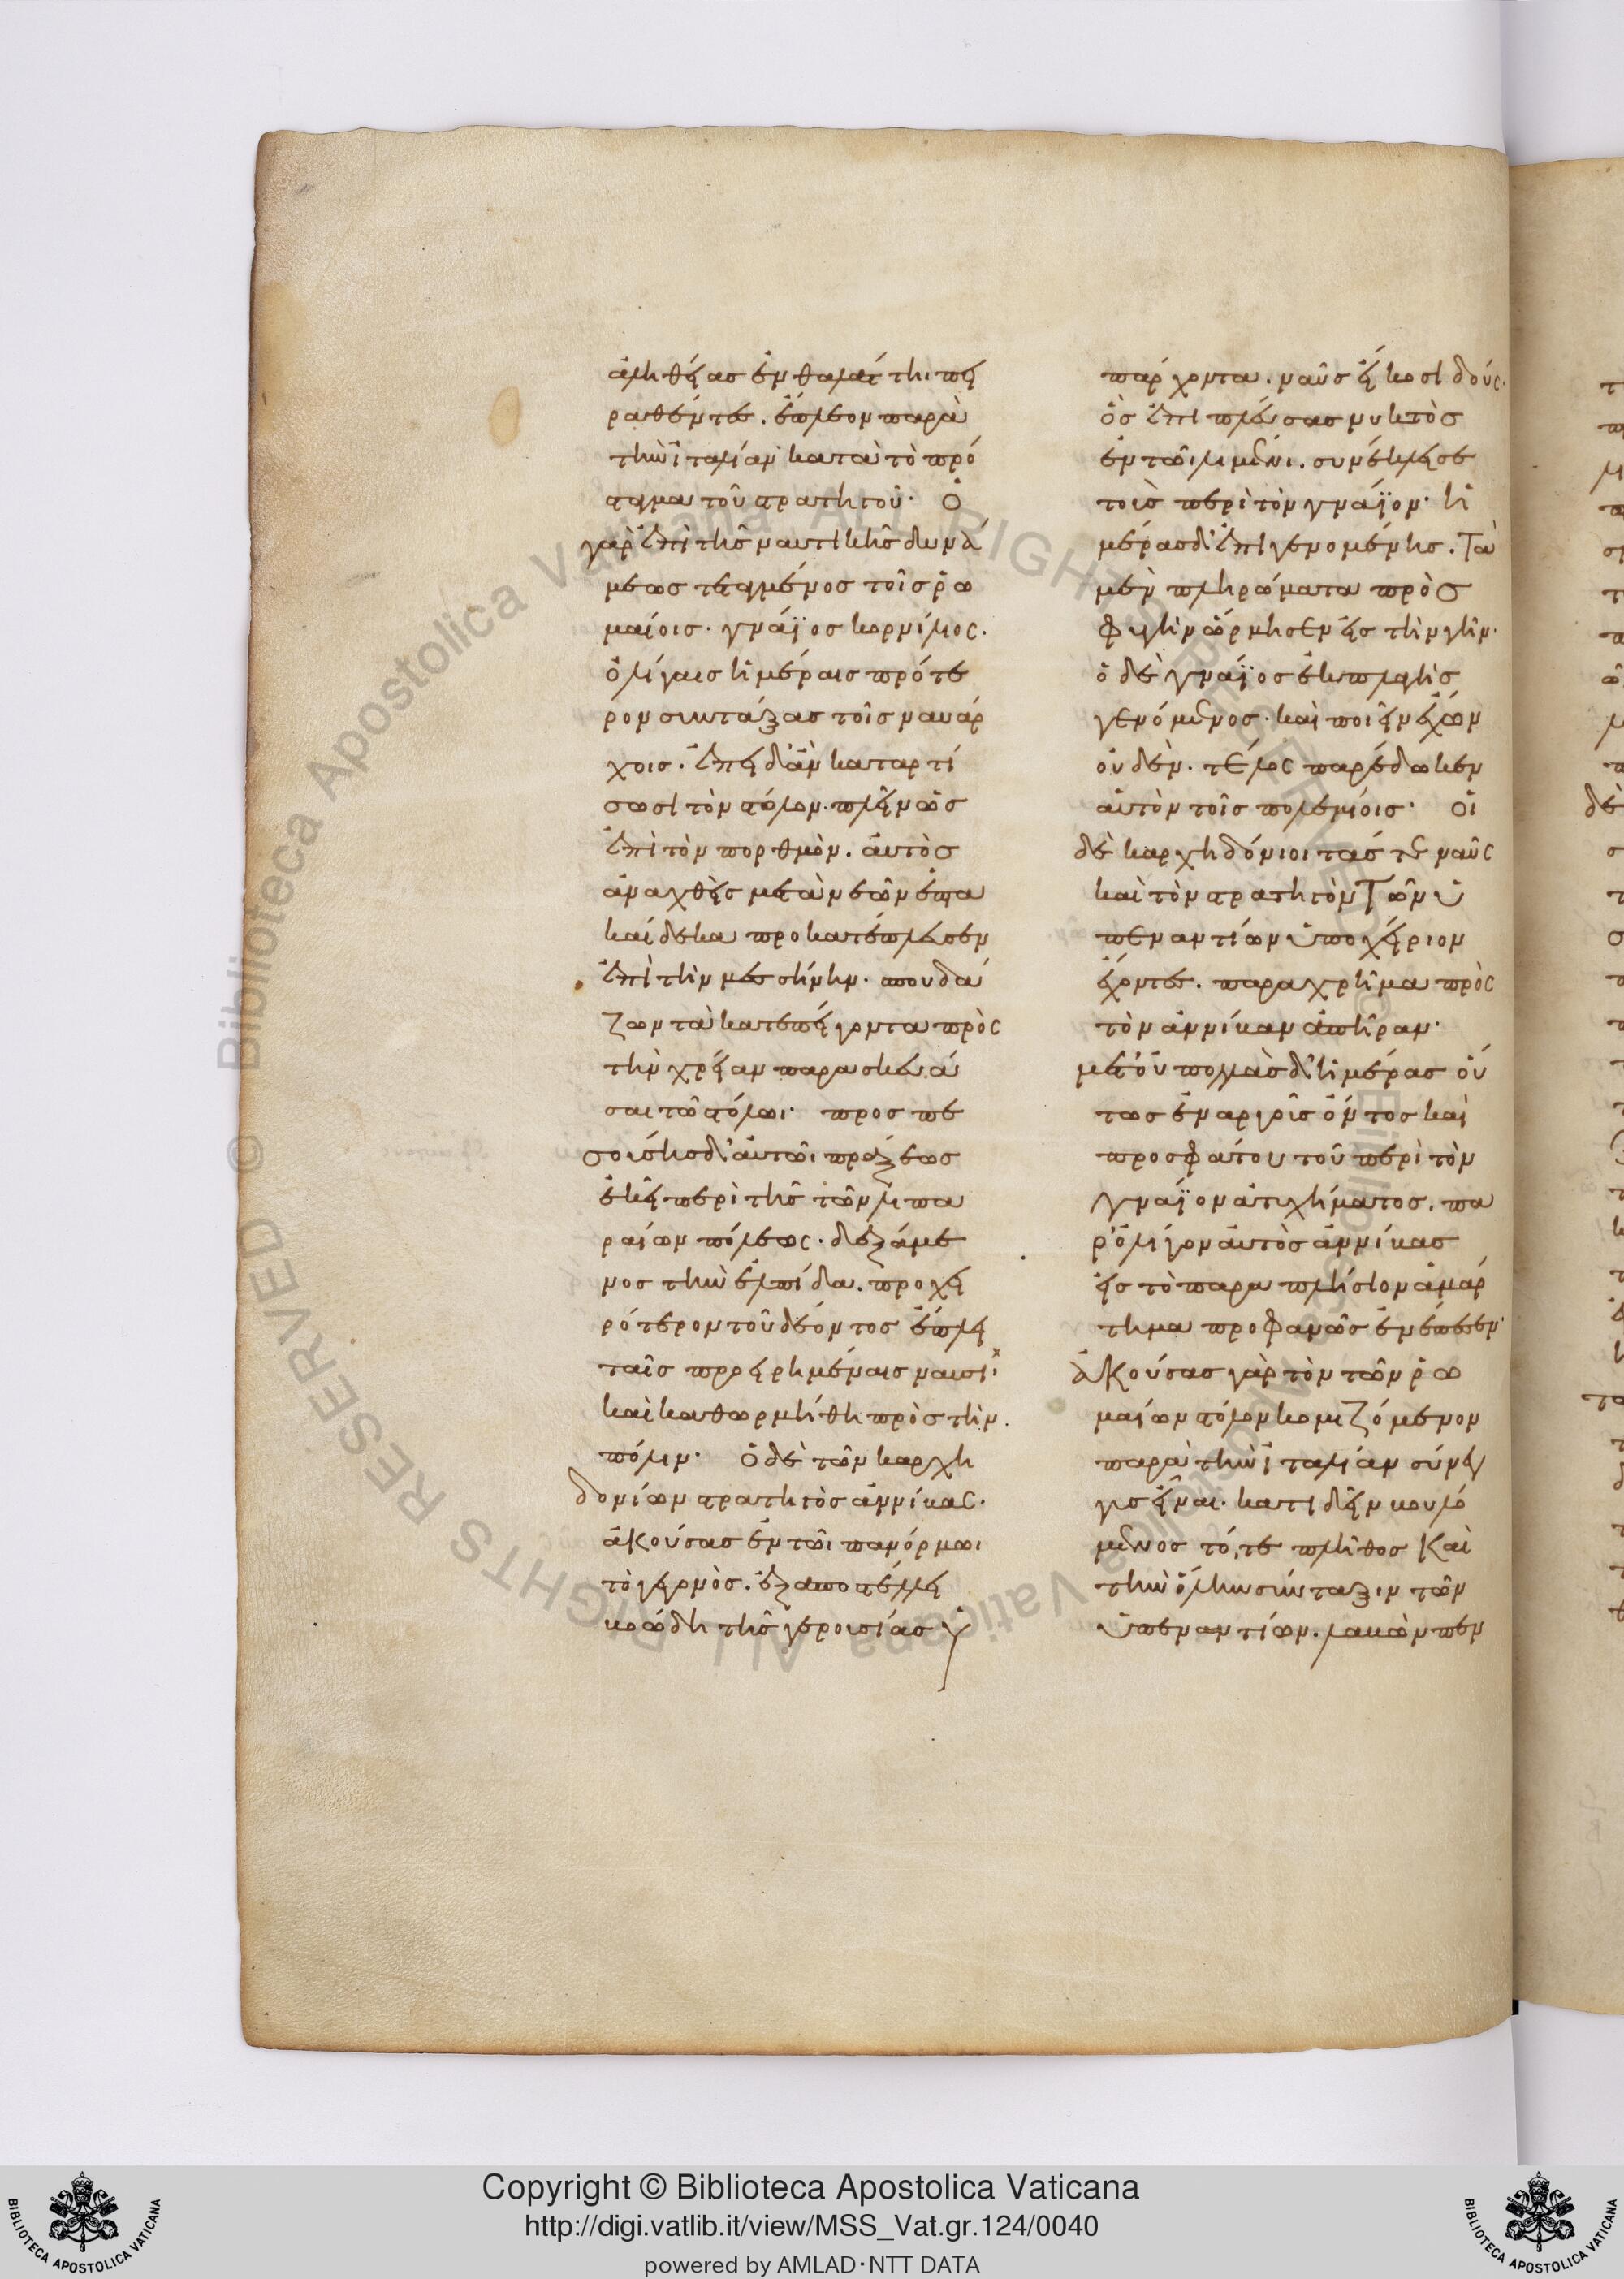 ἀληθείας ἐν θαλάττηι πει
ραθέντες. ἔπλεον παρὰ
τὴν ἰταλίαν κατὰ τὸ πρό
σταγμα τοῦ στρατηγοῦ· ὁ
γὰρ ἐπὶ τῆς ναυτικῆς δυνά
μεως τεταγμένος τοῖς ῥω
μαίοις. γνάϊος κορνίλιος.
ὀλίγαις ἡμέραις πρότε
ρον συντάξας τοῖς ναυάρ
χοις. ἐπειδὰν καταρτί
σωσι τὸν στόλον. πλεῖν ὡς
ἐπὶ τὸν πορθμὸν. αὐτὸς
ἀναχθεὶς μετὰ νεῶν ἑπτα
καίδεκα προκατέπλευσεν
ἐπὶ τὴν μεσσήνην. σπουδά
ζων τὰ κατεπείγοντα πρὸς
τὴν χρείαν παρασκευά
σαι τῶ στόλωι· προσπε
σούσης δ' αὐτῶι πράξεως
ἐκεῖ περὶ τῆς τῶν λιπα
ραίων πόλεως. δεξάμε
νος τὴν ἐλπίδα. προχει
ρότερον τοῦ δέοντος ἔπλει
ταῖς προειρημέναις ναυσί·
καὶ καθωρμήθη πρὸς τὴν
πόλιν· ὁ δὲ τῶν καρχη
δονίων στρατηγὸς ἀννίβας.
ἀκούσας ἐν τῶι πανόρμωι
τὸ γεγονὸς. ἐξαποστέλλει
βοώδη τῆς γερουσίας ὑ
πάρχοντα. ναῦς εἴκοσι δούς.
ὃς ἐπιπλεύσας νυκτὸς
ἐν τῶι λιμένι. συνέκλεισε
τοὺς περὶ τὸν γνάϊον· ἡ
μέρας δ' ἐπιγενομένης. τὰ
μὲν πληρώματα πρὸς
φυγὴν ὥρμησεν εἰς τὴν γῆν·
ὁ δὲ γνάϊος ἐκπλαγὴς
γενόμενος. καὶ ποιεῖν ἔχων
οὐδέν. τέλος παρέδωκεν
αὑτὸν τοῖς πολεμίοις· οἱ
δὲ καρχηδόνιοι τάς τε ναῦς
καὶ τὸν στρατηγὸν τῶν ὑ
πεναντίων ὑποχείριον
ἔχοντες. παραχρῆμα πρὸς
τὸν ἀννίβαν ἀπῆραν·
μετ' οὐ πολλὰς δ' ἡμέρας οὕ
τως ἐναργοῦς ὄντος καὶ
προσφάτου τοῦ περὶ τὸν
γνάϊον ἀτυχήματος. πα
ρ' ὀλίγον αὐτὸς ἀννίβας
εἰς τὸ παραπλήσιον ἁμάρ
τημα προφανῶς ἐνέπεσεν·
ἀκούσας γὰρ τὸν τῶν ῥω
μαίων στόλον κομιζόμενον
παρὰ τὴν ἰταλίαν σύνεγ
γυς εἶναι. κατιδεῖν βουλό
μενος τό, τε πλῆθος καὶ
τὴν ὅλην σύνταξιν τῶν
ὑπεναντίων. λαβὼν πεν
Copyright © Biblioteca Apostolica Vaticana
http://digi.vatlib.it/view/MSS_Vat.gr.124/0040
powered by AMLAD·NTT DATA